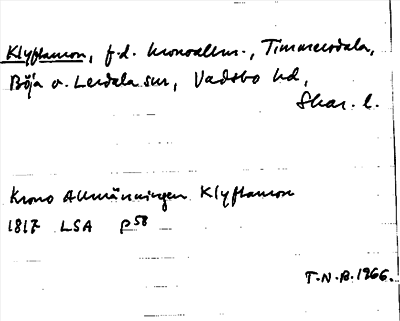 Klyftamon, f.d. kronoallm., Timmersdala,
Böja o. Lerdala snr, Vadsbo hd,
Skar. l.
Krono Allmänningen Klyftamon
1817 LSA P58
T.N.B. 1966.